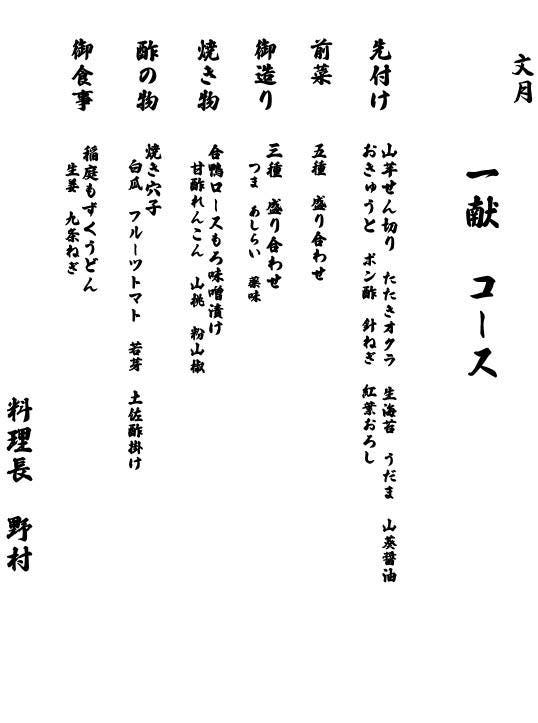 文月
一献　コース
先付け
山芋せん切り　たたきオクラ　生海苔　うだま　山葵醤油
おきゅうと　ポン酢　針ねぎ　紅葉おろし
前菜
五種　盛り合わせ
御造り
三種　盛り合わせ
つま　あしらい　薬味
焼き物
合鴨ロースもろ味噌漬け
甘酢れんこん　山桃　粉山椒
酢の物
焼き穴子
白瓜　フルーツトマト　若芽　土佐酢掛け
御食事
稲庭もずくうどん
生姜　九条ねぎ
料理長　野村